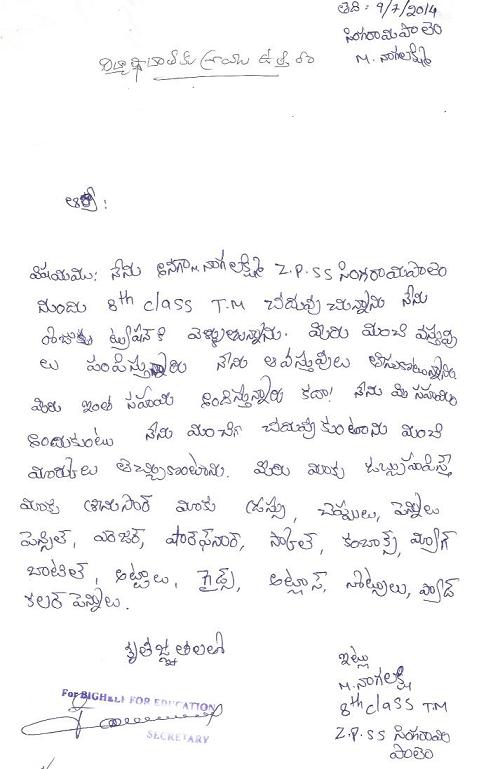 తేది : 9/7/2014
సింగరాయిపాలెం
M. నాగలక్ష్మి
విద్యార్థి దాతకు రాయు ఉత్తరం
ఆర్య :
విషయము: నేను M. నాగలక్ష్మి Z.P.SS సింగరాయిపాలెం
నుండు 8th class T.M చదువు చున్నాను నేను
రోజుకు ట్యూషన్ కి వెళ్ళుతున్నాను. మీరు మంచి వస్తువు
లు పంపిస్తున్నారు నేను ఆ వస్తువులు తీసుకొంటున్నాను
మీరు ఇంత సహాయం అందిస్తున్నారు కదా! నేను మీ సహాయం
అందుకుంటు నేను మంచిగ చదువుకుంటాను మంచి
మార్కులు తెచ్చుకుంటాను. మీరు మాకు డబ్బు పంపిస్తే
మాకు సార్ మాకు డ్రస్సు, చెప్పులు, పెన్నులు
పెన్సిల్, ఎరేజర్, షార్ప్‌నార్, స్కేల్, కంబాక్స్, బ్యాగ్
బాటిల్, అట్టలు, గైడ్స్, అట్లాస్, నోట్సులు, ప్యాడ్
కలర్ పెన్నిలు.
కృతజ్ఞతలతో
ఇట్లు
M. నాగలక్ష్మి
8th class TM
Z.P.SS సింగరాయి
పాలెం
For BIGHELP FOR EDUCATION
SECRETARY